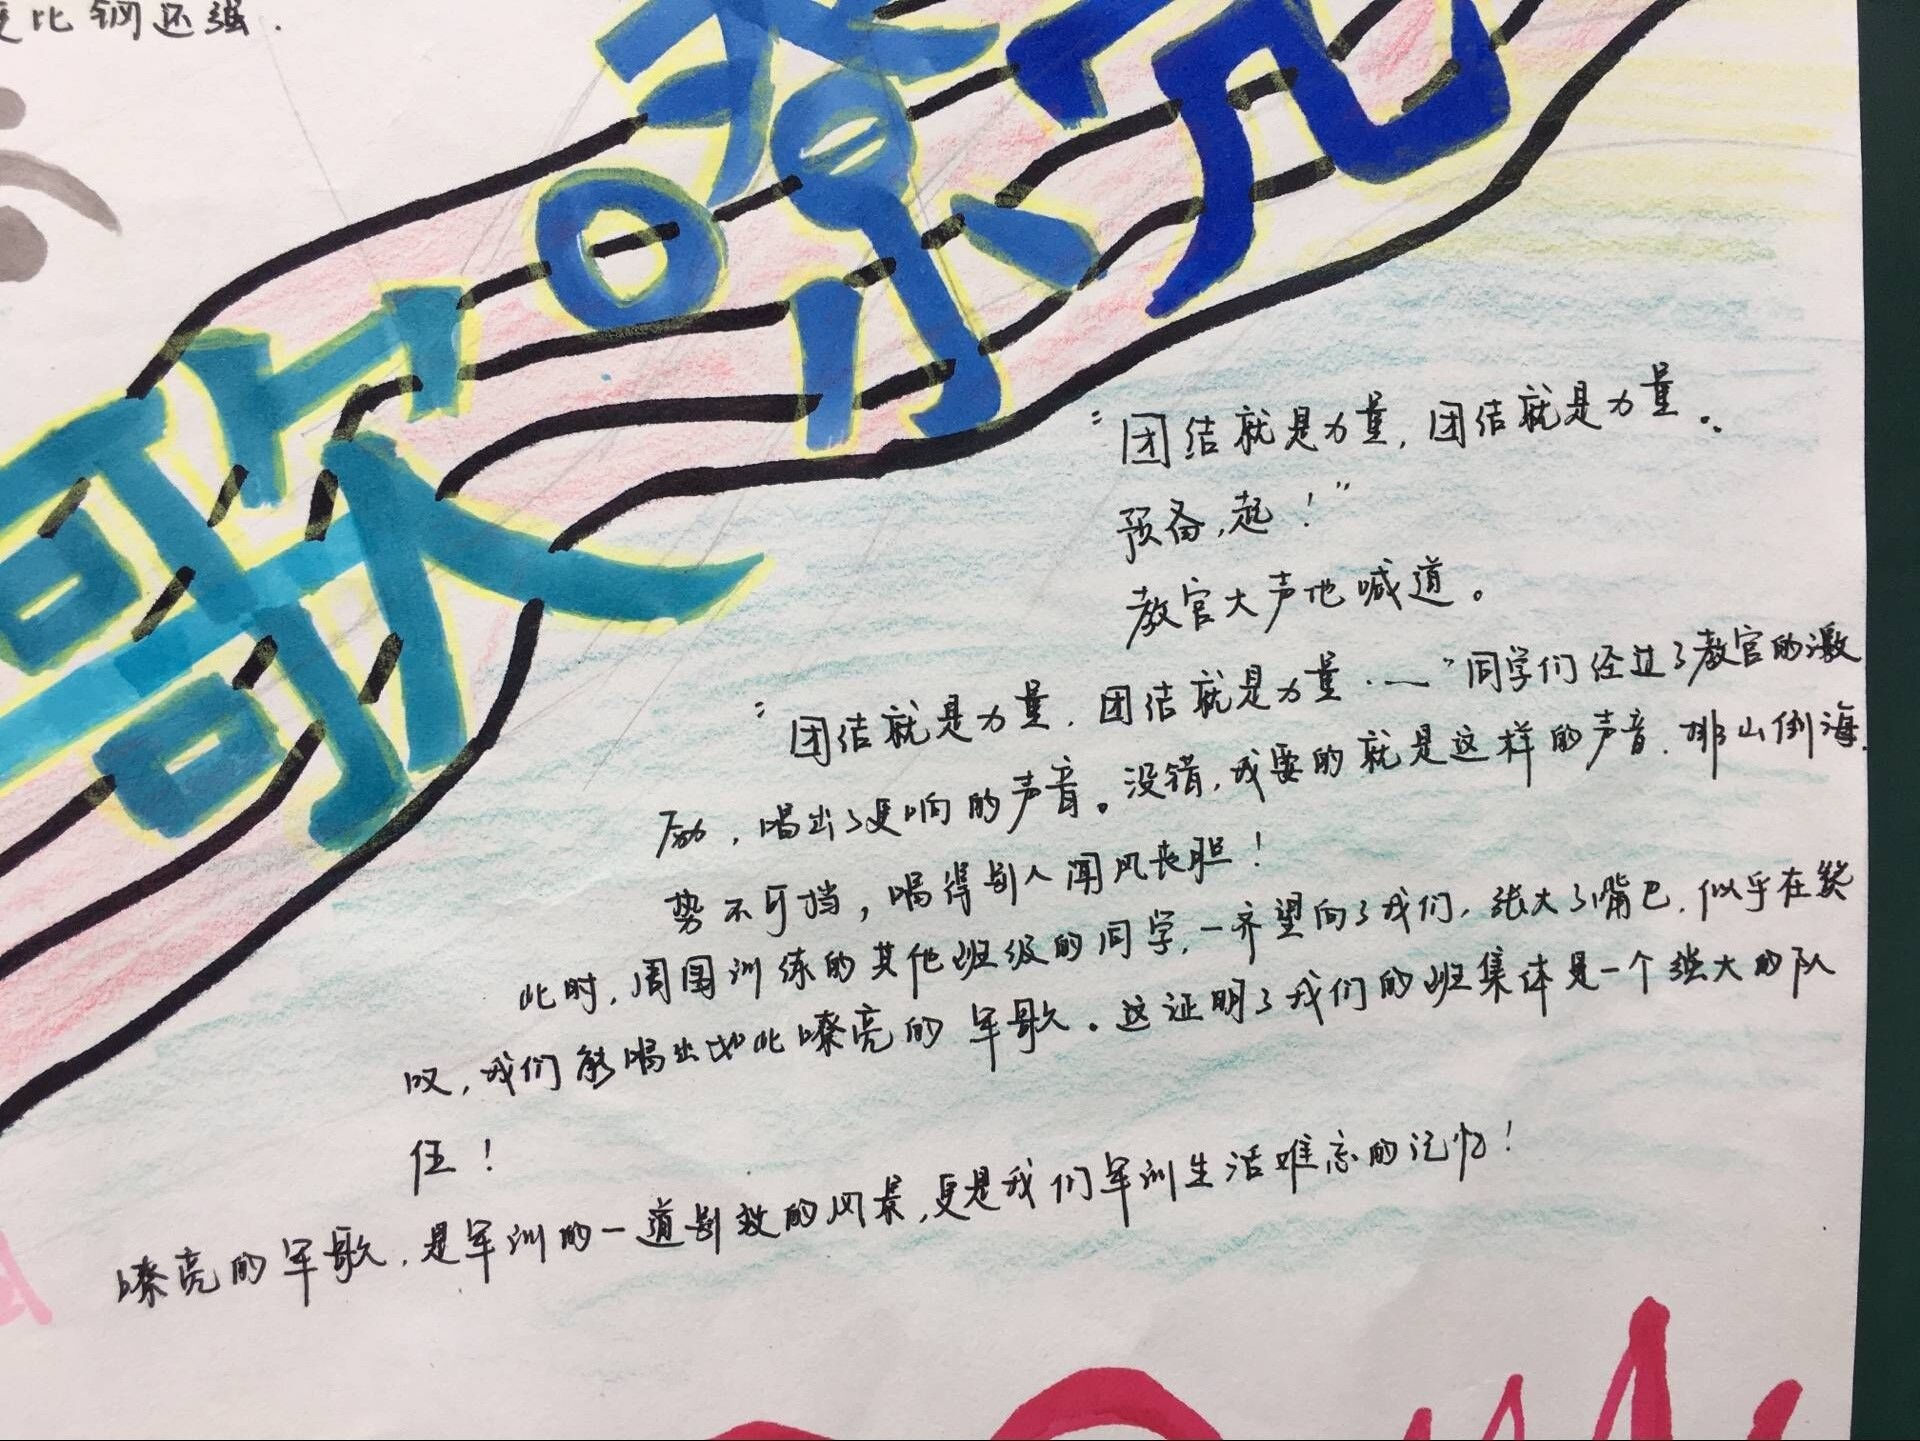 比钢还强.
歌嘹亮
“团结就是力量,团结就是力量。
预备,起!”
教官大声地喊道。
“团结就是力量,团结就是力量……”同学们经过了教官的激
励,唱出了更响的声音。没错,我要的就是这样的声音,排山倒海,
势不可挡,唱得别人闻风丧胆!
此时,周围训练的其他班级的同学,一齐望向了我们,张大了嘴巴,似乎在赞
叹,我们能唱出如此嘹亮的军歌。这证明了我们的班集体是一个强大的队
伍!
嘹亮的军歌,是军训的一道别致的风景,更是我们军训生活难忘的记忆!